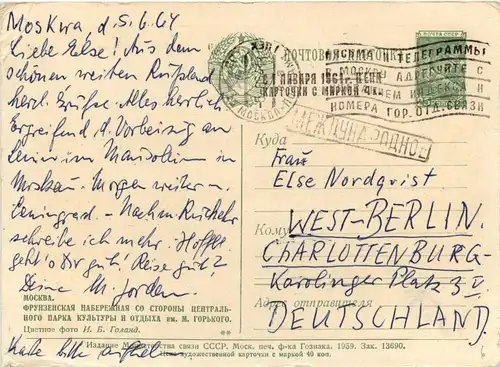 Moskwa d. 5.6.64
Liebe Else! Aus dem
schönen weiten Rußland
herzl. Grüße. Alles herrlich
Ergreifend d. Vorbeizug an
Lenin im Mausoleum in
Moskau. Morgen weiter n.
Leningrad. – Nach m. Rückkehr
schreibe ich mehr. Hoffe
geht's Dir gut! Reise gut?
Deine M. Jorden.
МОСКВА.
ФРУНЗЕНСКАЯ НАБЕРЕЖНАЯ СО СТОРОНЫ ЦЕНТРАЛЬ-
НОГО ПАРКА КУЛЬТУРЫ И ОТДЫХА им. М. ГОРЬКОГО.
Цветное фото И. Б. Голанд.
**
bitte
Издание Министерства связи СССР. Моск. печ. ф-ка Гознака. 1959. Зак. 13690.
Цена художественной карточки с маркой 40 коп.
ПОЧТОВАЯ КАРТОЧКА
С 1 ЯНВАРЯ 1961 г. ЦЕНА
КАРТОЧКИ С МАРКОЙ 4 к.
ПИСЬМА ТЕЛЕГРАММЫ
АДРЕСУЙТЕ С
НОМЕРА ГОР. ОТД. СВЯЗИ
МЕЖДУНАРОДНОЕ
Куда
Frau
Else Nordqvist
Кому
WEST-BERLIN.
CHARLOTTENBURG-
Karolinger Platz 3 V
Адрес отправителя
DEUTSCHLAND.